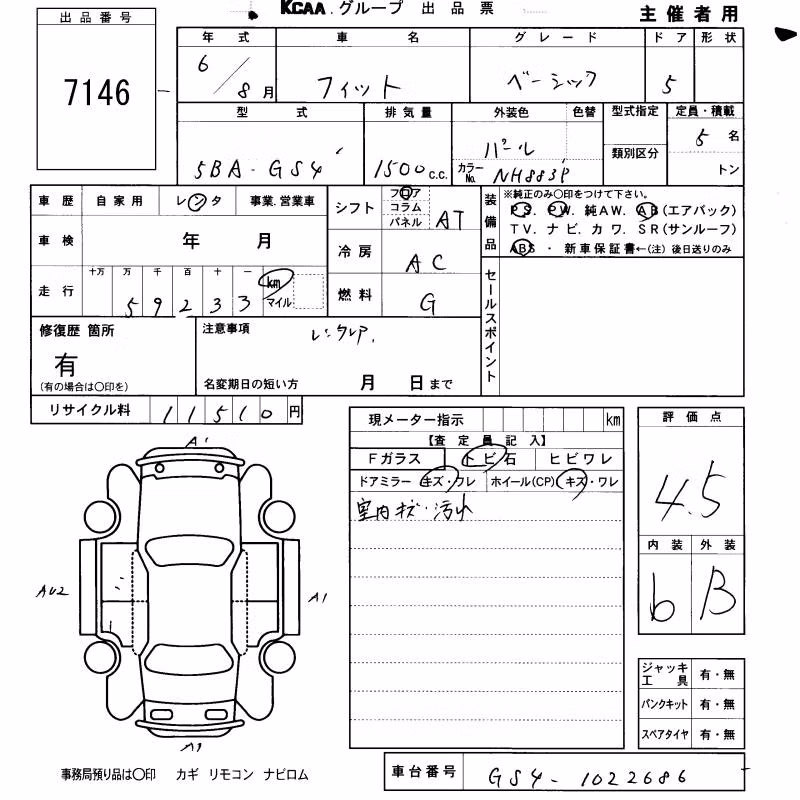 KCAA.グループ 出品票
主催者用
出品番号
7146
年式 車名 グレード ドア 形状
6/8月 フィット ベーシック 5
型式 排気量 外装色 色替 型式指定 定員・積載
5BA-GS4 1500c.c. パール 類別区分 5名
カラーNo. NH883P トン
車歴 自家用 レンタ 事業.営業車
車検 年 月
走行 十万 万 千 百 十 一
59233 km マイル
シフト フロア コラム パネル AT
冷房 AC
燃料 G
装備品 ※純正のみ〇印をつけて下さい。
PS. PW. 純AW. AB(エアバック)
TV. ナビ. カワ. SR(サンルーフ)
ABS ・ 新車保証書←(注) 後日送りのみ
セールスポイント
修復歴 箇所
有
(有の場合は〇印を)
注意事項
レンタUP.
名変期日の短い方 月 日まで
リサイクル料 11510円
現メーター指示 km
【査定員記入】
Fガラス トビ石 ヒビワレ
ドアミラー キズ・ワレ ホイール(CP) キズ・ワレ
室内キズ・汚れ
評価点
4.5
内装 外装
b B
ジャッキ工具 有・無
パンクキット 有・無
スペアタイヤ 有・無
A1
AU2
A1
A1
事務局預り品は〇印 カギ リモコン ナビロム
車台番号 GS4-1022686